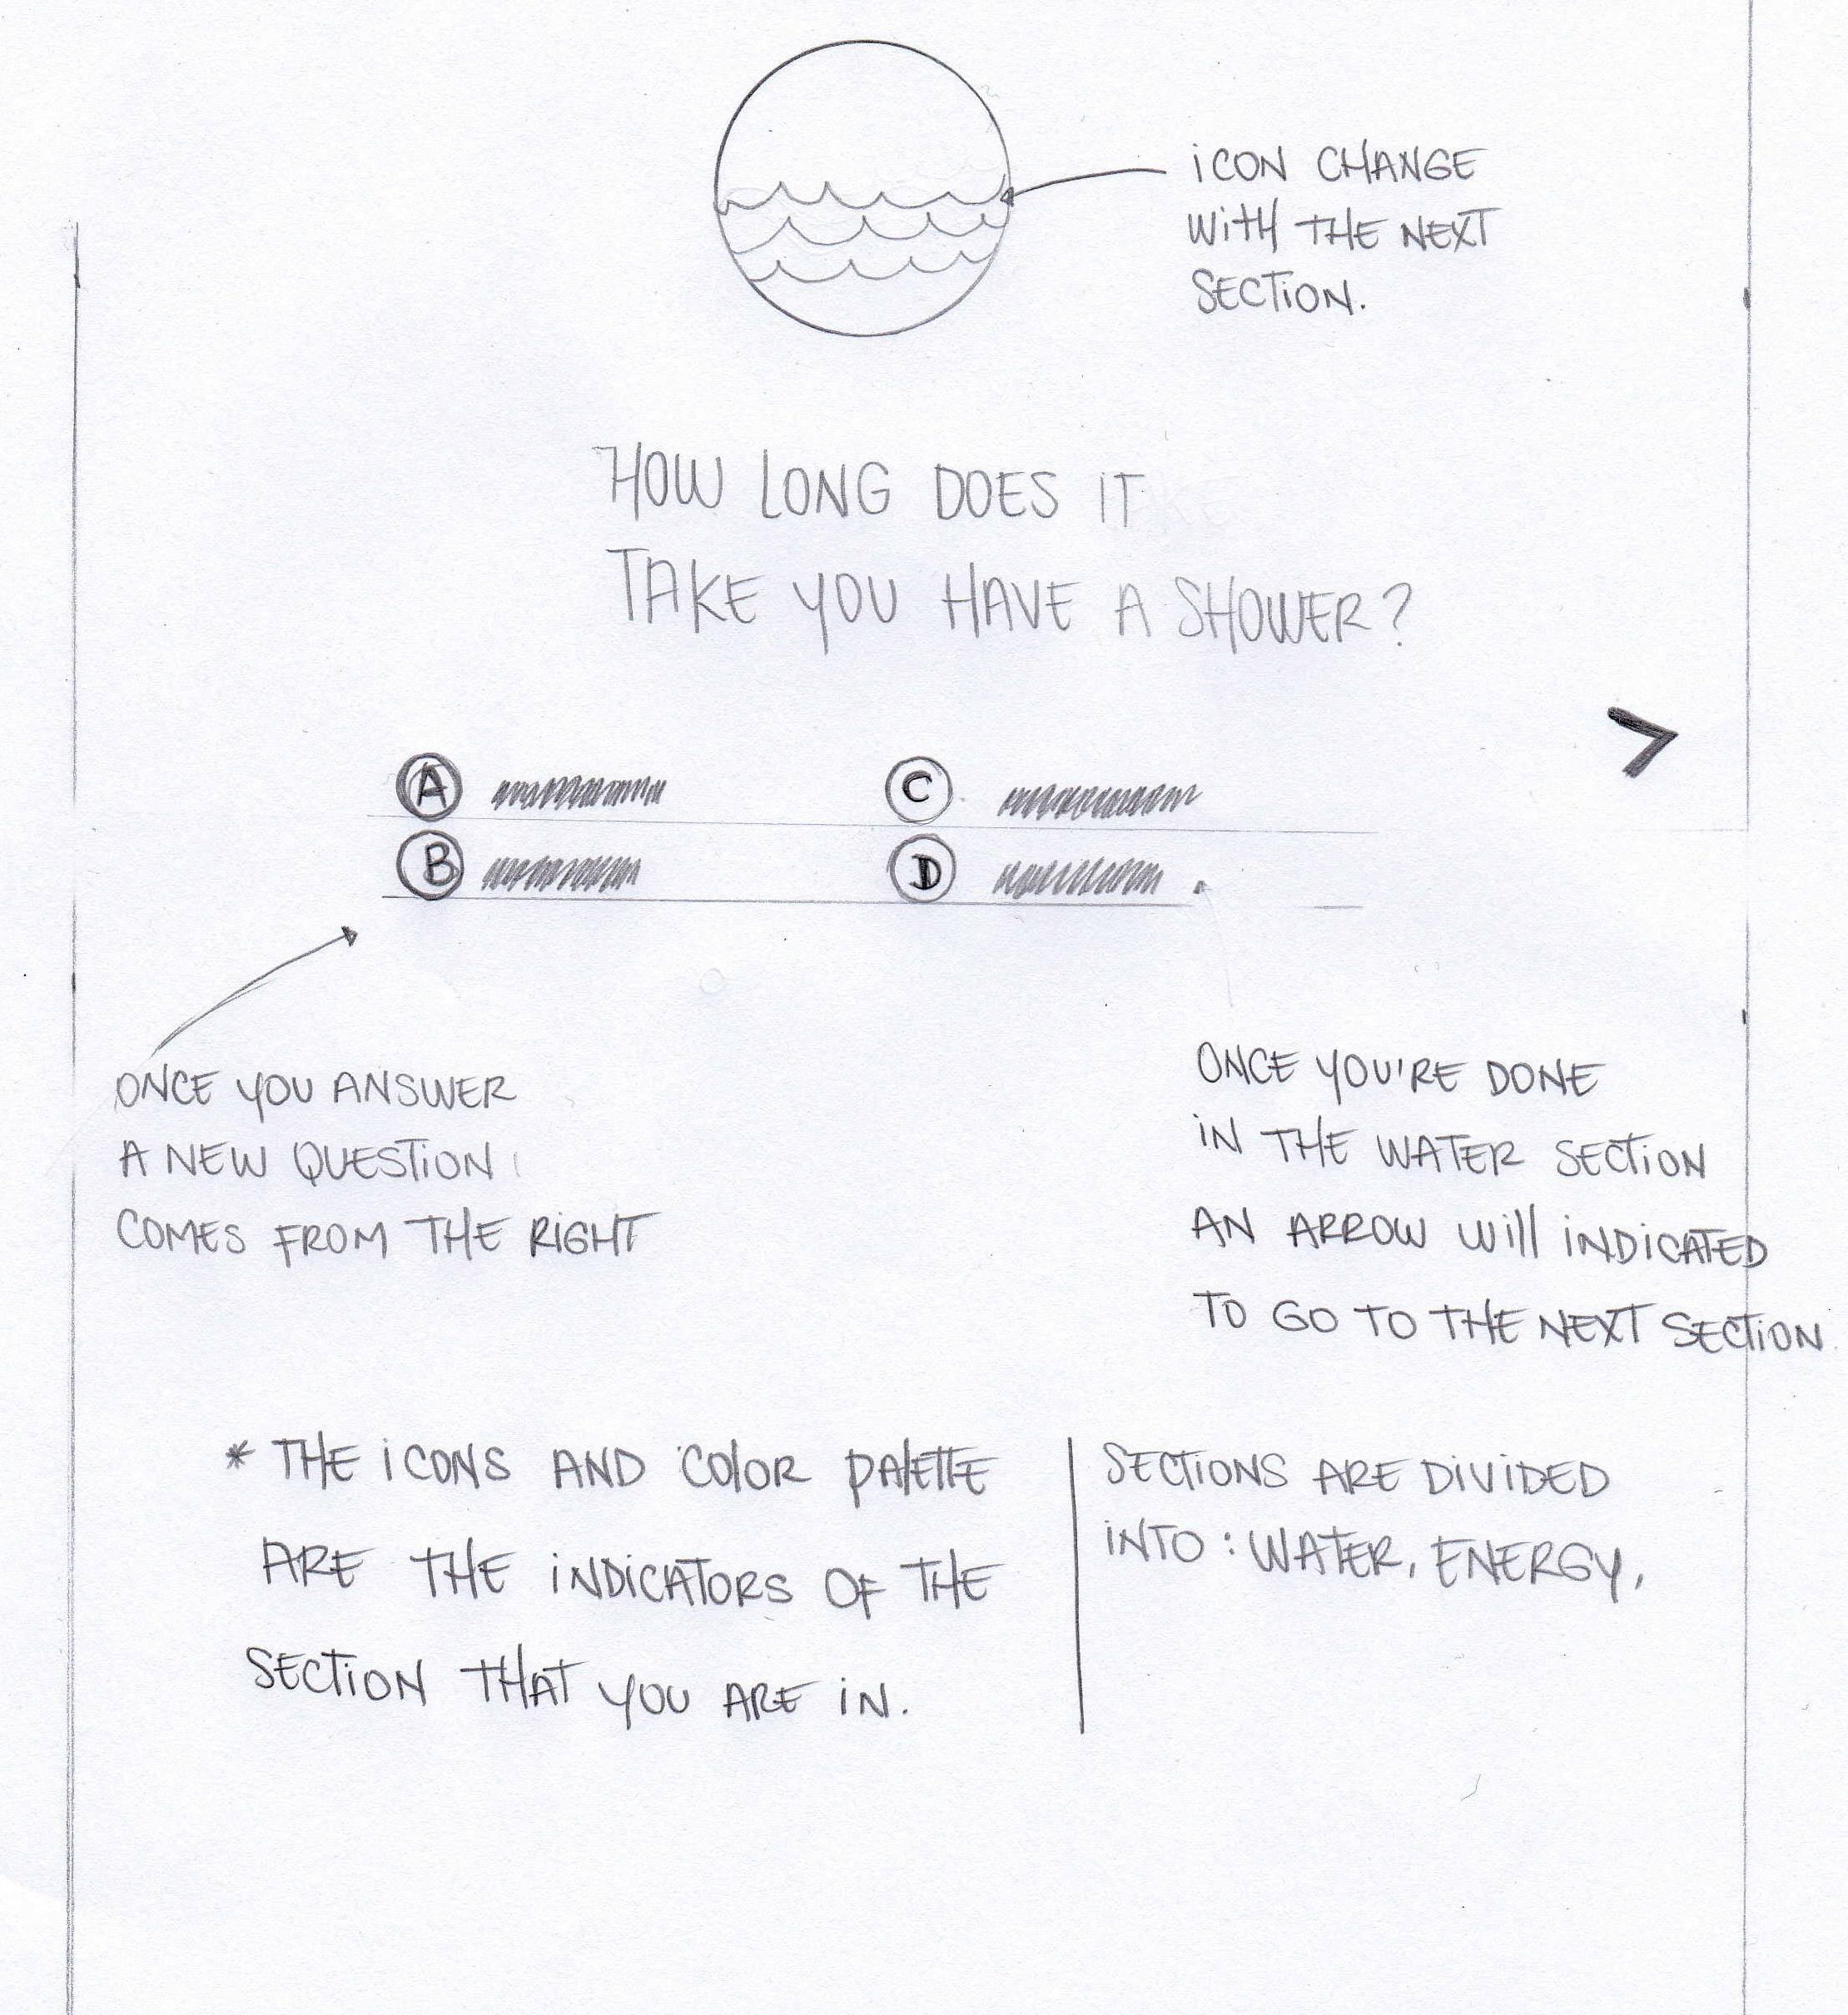 iCON CHANGE
WiTH THE NEXT
SECTiON.
HOW LONG DOES IT
TAKE YOU HAVE A SHOWER?
>
A
C
B
D
ONCE YOU ANSWER
A NEW QUESTiON
COMES FROM THE RiGHT
ONCE YOU'RE DONE
iN THE WATER SECTiON
AN ARROW Will iNDiCATED
TO GO TO THE NEXT SECTiON.
* THE iCONS AND COlOR PAlETTE
ARE THE iNDiCATORS OF THE
SECTiON THAT YOU ARE iN.
SECTiONS ARE DiViDED
iNTO : WATER, ENERGY,